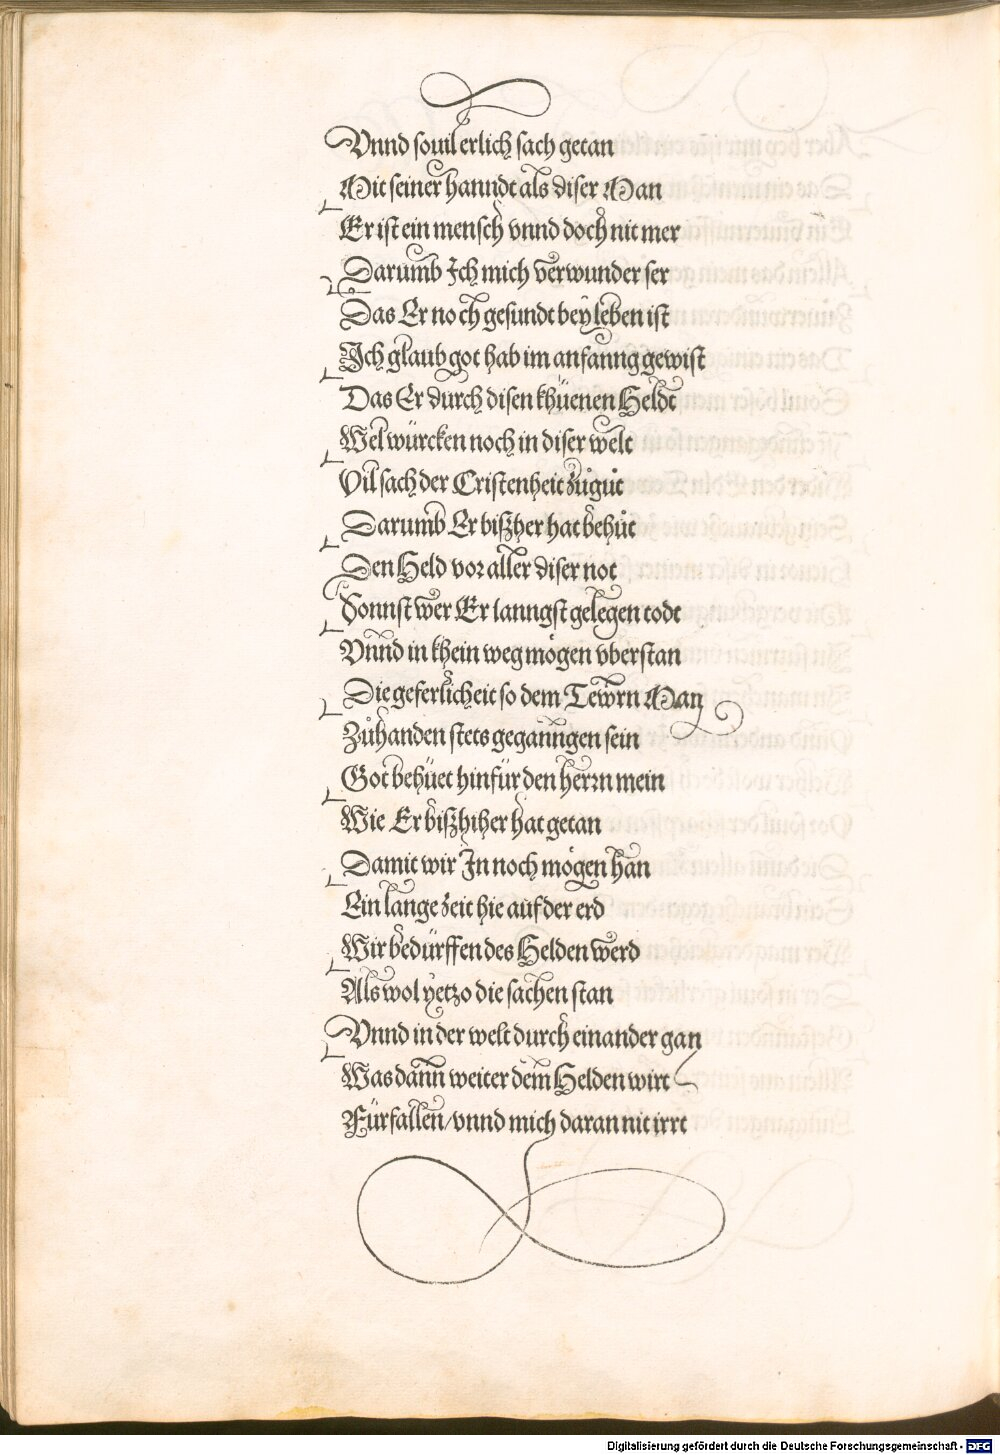 Vnnd souil erlich sach getan
Mit seiner hanndt als diser Man
Er ist ein mensch vnnd doch nit mer
Darumb Ich mich verwunder ser
Das Er noch gesundt bey leben ist
Ich glaub got hab im anfanng gewist
Das Er durch disen khüenen Heldt
Wel würcken noch in diser welt
Vil sach der Cristenheit zůgůt
Darumb Er bißher hat behůt
Den Held vor aller diser not
Sonnst wer Er lanngst gelegen todt
Vnnd in khein weg mögen vberstan
Die geferlicheit so dem Tewrn Man
Zůhanden stets gegannngen sein
Got behüet hinfür den herrn mein
Wie Er bißhiher hat getan
Damit wir In noch mögen han
Ein lange zeit hie auf der erd
Wir bedürffen des Helden werd
Als wol yetzo die sachen stan
Vnnd in der welt durch einander gan
Was dann weiter dem Helden wirt
Fürfallen/vnnd mich daran nit irrt
Digitalisierung gefördert durch die Deutsche Forschungsgemeinschaft - DFG